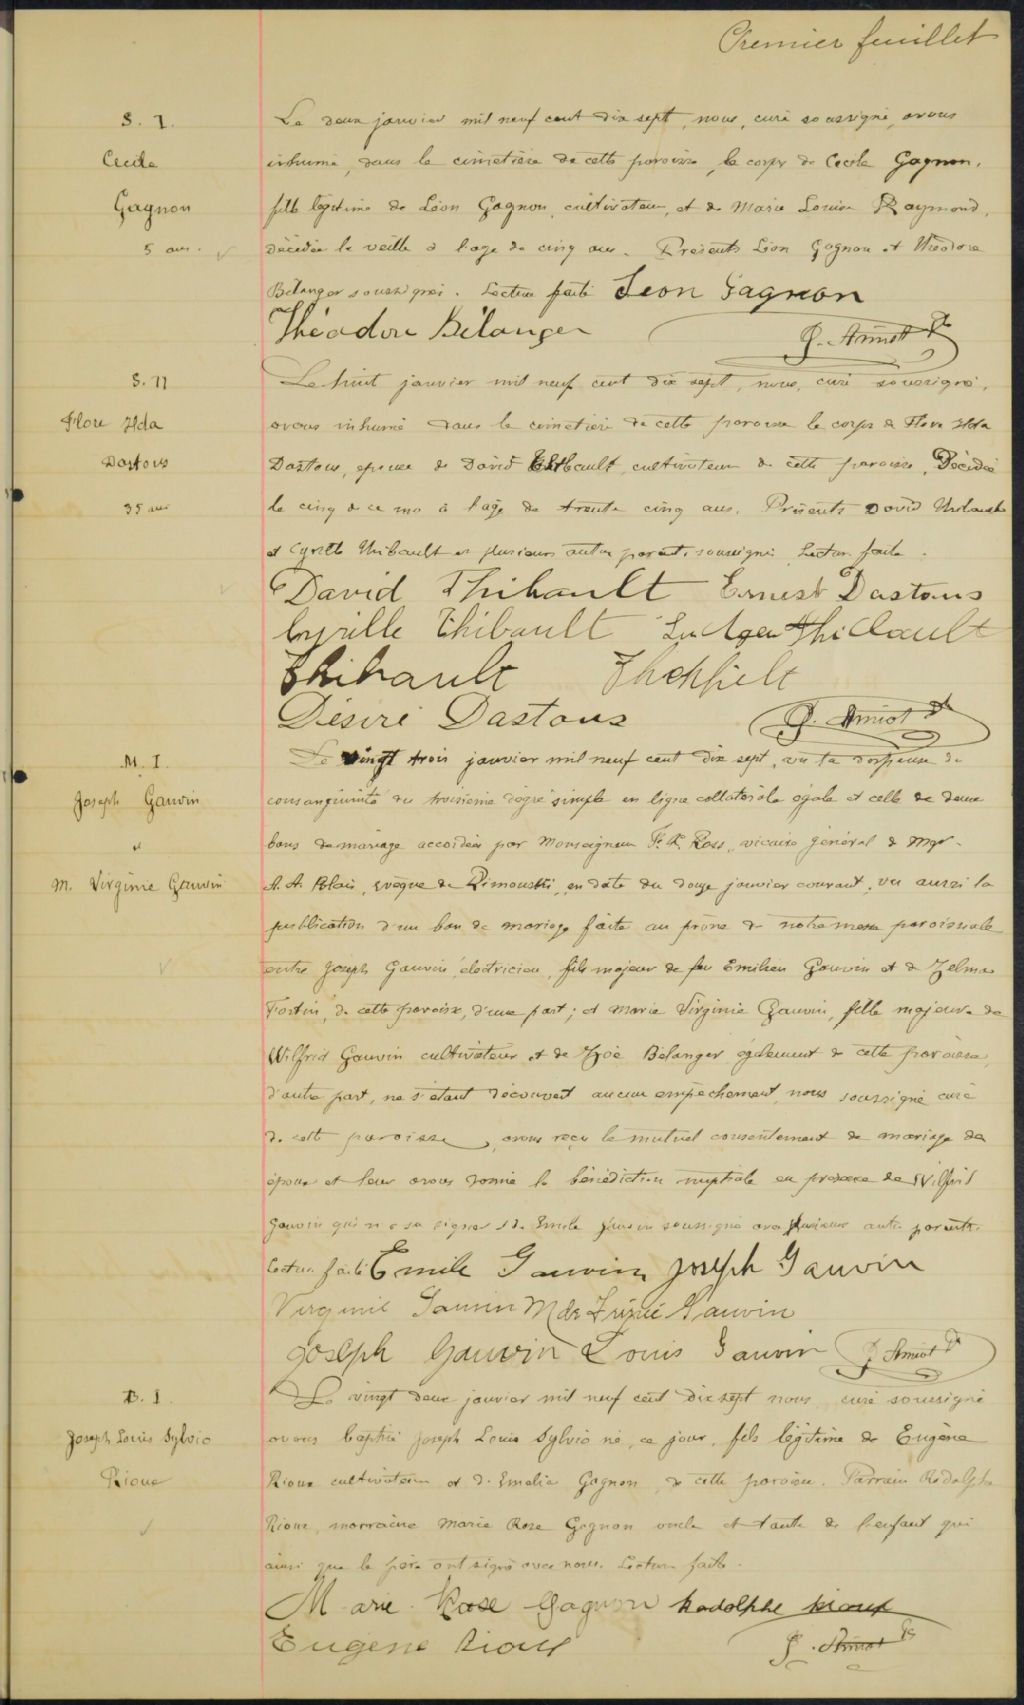 Premier feuillet
S. 1.
Cecile
Gagnon
5 ans.
Le deux janvier mil neuf cent dix sept, nous, curé soussigné, avons
inhumé, dans le cimetière de cette paroisse, le corps de Cecile Gagnon,
fille légitime de Léon Gagnon, cultivateur, et de Marie Louise Raymond,
décédée le veille à l'age de cinq ans. Présents Léon Gagnon et Théodore
Bélanger soussignés. Lecture faite Leon Gagnon
Théodore Bélanger
J. Amiot Ptr
S. 11
Flore Hda
Dastous
35 ans
Le huit janvier mil neuf cent dix sept, nous, curé soussigné,
avons inhumé dans le cimetière de cette paroisse le corps de Flore Hda
Dastous, épouse de David Thibault, cultivateur de cette paroisse, Décédée
le cinq de ce mois à l'age de trente cinq ans. Présents David Thibault
et Cyrille Thibault et plusieurs autres parents soussignés. Lecture faite.
David Thibault Ernest Dastous
Cyrille Thibault Thibault
Thibault
Désiré Dastous
J. Amiot Ptr
M. I.
Joseph Gauvin
&
M. Virginie Gauvin
Le vingt trois janvier mil neuf cent dix sept, vu la dispense de
consanguinité du troisième degré simple en ligne collatérale égale et celle de deux
bans de mariage accordées par Monseigneur F. X. Ross, vicaire général de Mgr.
A. A. Blais, évêque de Rimouski, en date du douze janvier courant, vu aussi la
publication d'un ban de mariage faite au prône de notre messe paroissiale
entre Joseph Gauvin, électricien, fils majeur de feu Emilien Gauvin et de Zelma
Fortin, de cette paroisse, d'une part; et Marie Virginie Gauvin, fille majeure de
Wilfrid Gauvin cultivateur et de Zoé Bélanger également de cette paroisse,
d'autre part, ne s'étant découvert aucun empêchement, nous soussigné curé
de cette paroisse, avons reçu le mutuel consentement de mariage des
époux et leur avons donné la bénédiction nuptiale en présence de Wilfrid
Gauvin qui n'a su signer et de Emile Gauvin soussigné avec plusieurs autres parents.
Lecture faite Emile Gauvin Joseph Gauvin
Virginie Gauvin Mde Gauvin
Joseph Gauvin Louis Gauvin J. Amiot Ptr
B. I.
Joseph Louis Sylvio
Rioux
Le vingt deux janvier mil neuf cent dix sept nous curé soussigné
avons baptisé Joseph Louis Sylvio né, ce jour, fils légitime de Eugène
Rioux cultivateur et de Emelie Gagnon, de cette paroisse. Parrain Rodolphe
Rioux, marraine Marie Rose Gagnon oncle et tante de l'enfant qui
ainsi que le père ont signé avec nous. Lecture faite.
Marie Rose Gagnon Rodolphe Rioux
Eugène Rioux
J. Amiot Ptr